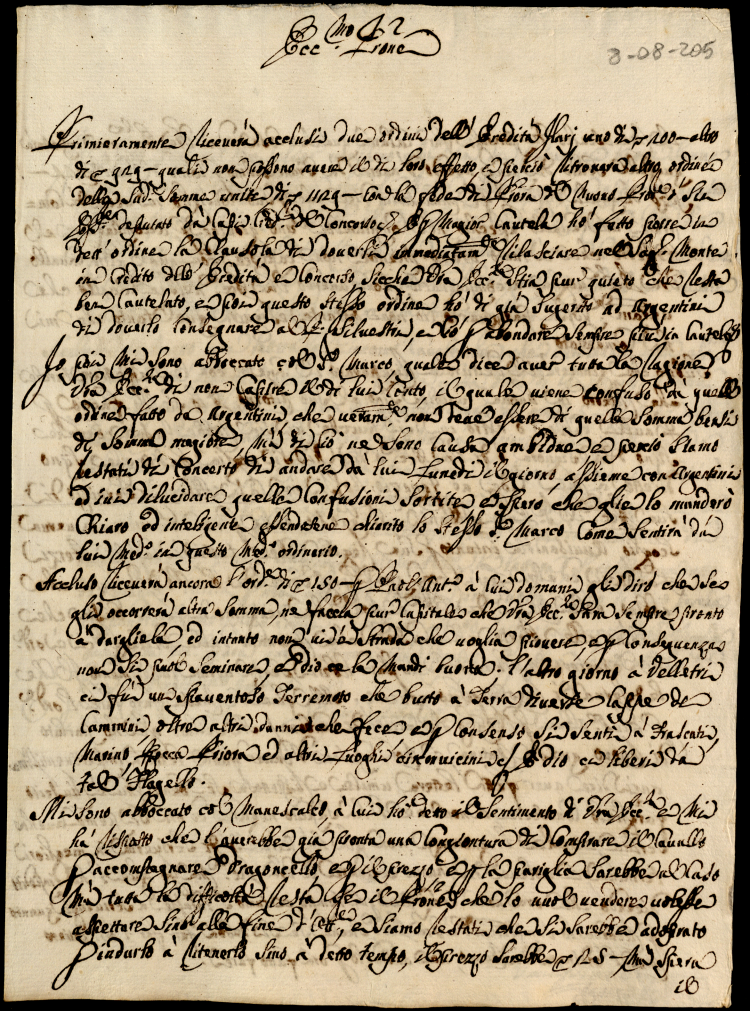 Ecc.mo Sig.r
Prone
8-08-205
Primieramente riceverà acclusi due ordini dell' Eredità Ilarj uno di 200 - altro
di 929 - quali non possono avere il di loro effetto, e perciò ritrovarà altro ordine
delle sud.e somme unite di 1129 - con la fede di Fiora del Nuovo
deputato dà Cred.ri del Concorso, e p maggior Cautela hò fatto porre in
dett' ordine la Clausola di doversi immediatam.te rilasciare nel Sag.o Monte
in Credito dell' Eredità e Concorso, sicche Vra Ecc.za stia pur quieto che resta
ben Cautelato, e poi questo stesso ordine hò di già sugerito ad Argentini
di doverlo consegnare al Silvestri, e ciò p abondare sempre più in Cautela
Io poi mi sono abboccato col S.r Marco, quale dice aver tutta la ragione
Vra Ecc.za di non Capire il di lui Conto, il quale viene confuso dà quell'
ordine fatto da Argentini, che veram.te non deve essere di quella somma bensì
di somma magiore, mà di ciò ne sono Causa e perciò siamo
restati di Concerto di andare da lui Lunedì il giorno assieme con Argentini
ed ivi dilucidare quelle Confusioni sortite, e spero che glie lo manderò
Chiaro ed inteligente essendosene chiarito lo stesso S.r Marco come sentirà da
lui Med.o in questo Med.o ordinario.
Accluso riceverà ancora l'ord.e di 150 - p Ant.o à lui domani gli dirò che se
gli occorrerà altra somma, ne faccia pur Capitale che Vra Ecc.za sarà sempre pronto
à dargliela, ed intanto non vi è strada che voglia piovere, e p Consequenza
non si può Seminare, e Dio ce la Mandi buona. l'altro giorno à Velletri
ci fù un spaventoso Terremoto che buttò à Terra diverse Cappe de
Cammini, oltre altri danni che fece, e p Consenso si sentì à Frascati,
Marino Rocca Priora ed altri Luoghi circonvicini Dio ci liberi da
tal Flagello.
Mi sono abboccato col Manescalco, à lui hò detto il sentimento di Vra Ecc.za e mi
hà risposto che l'averebbe già pronta una Congiontura di Comprare il Cavallo
p accompagnare Dragoncello, e p il prezzo e p la pariglia sarebbe al Caso
Mà tutta la difficoltà resta che il Prone che lo vuol vendere volesse
aspettare sino alla fine d' Ott.re, e siamo restati che si sarebbe adoprato
p indurlo à ritenerlo sino à detto tempo, il prezzo sarebbe 125 - Mà spera
il